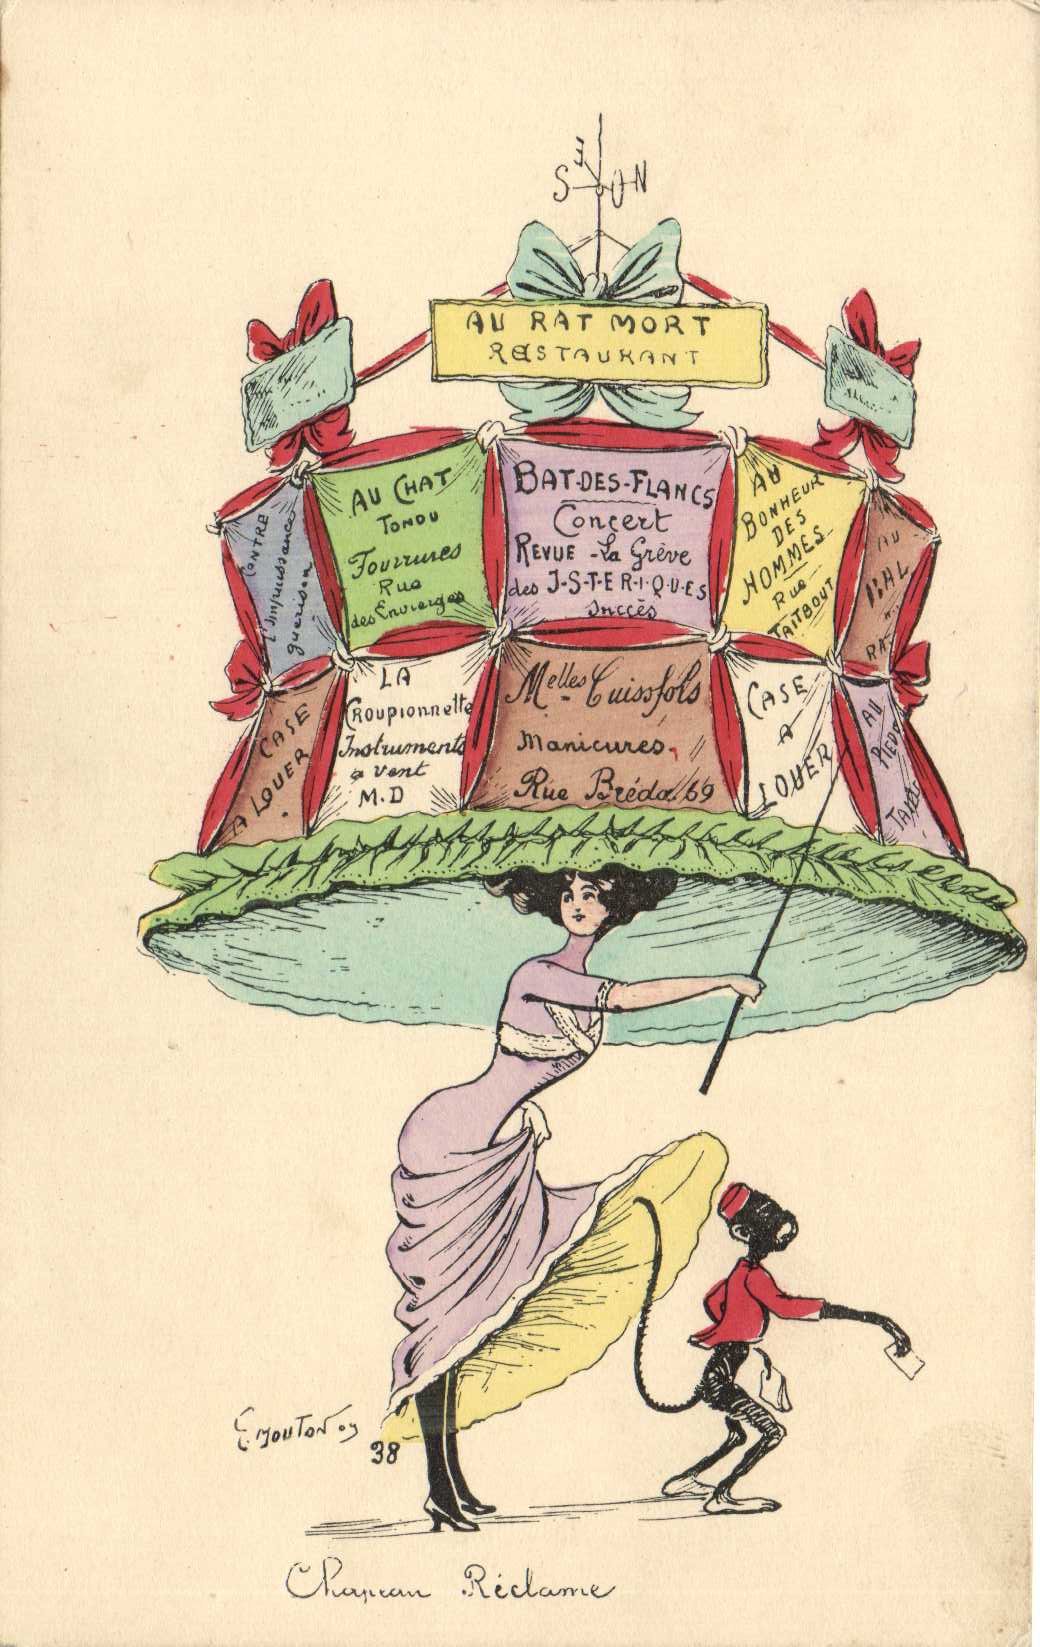 E
S O N
AU RAT MORT
RESTAURANT
CONTRE
l'impuissance
guérison
AU CHAT
TONDU
Fourrures
Rue
des Envierges
BAT-DES-FLANCS
Concert
REVUE - La Grève
des I-S-T-E-R-I-Q-U-E-S
Succès
AU
BONHEUR
DES
HOMMES
Rue
TAITBOUT
AU
RAT
CASE
A LOUER
LA
CROUPIONNETTE
Instruments
a vent
M.D
Melles Cuissfols
Manicures,
Rue Bréda 69
CASE
A
LOUER
AU
PIED
E. MOUTON 09
38
Chapeau Réclame